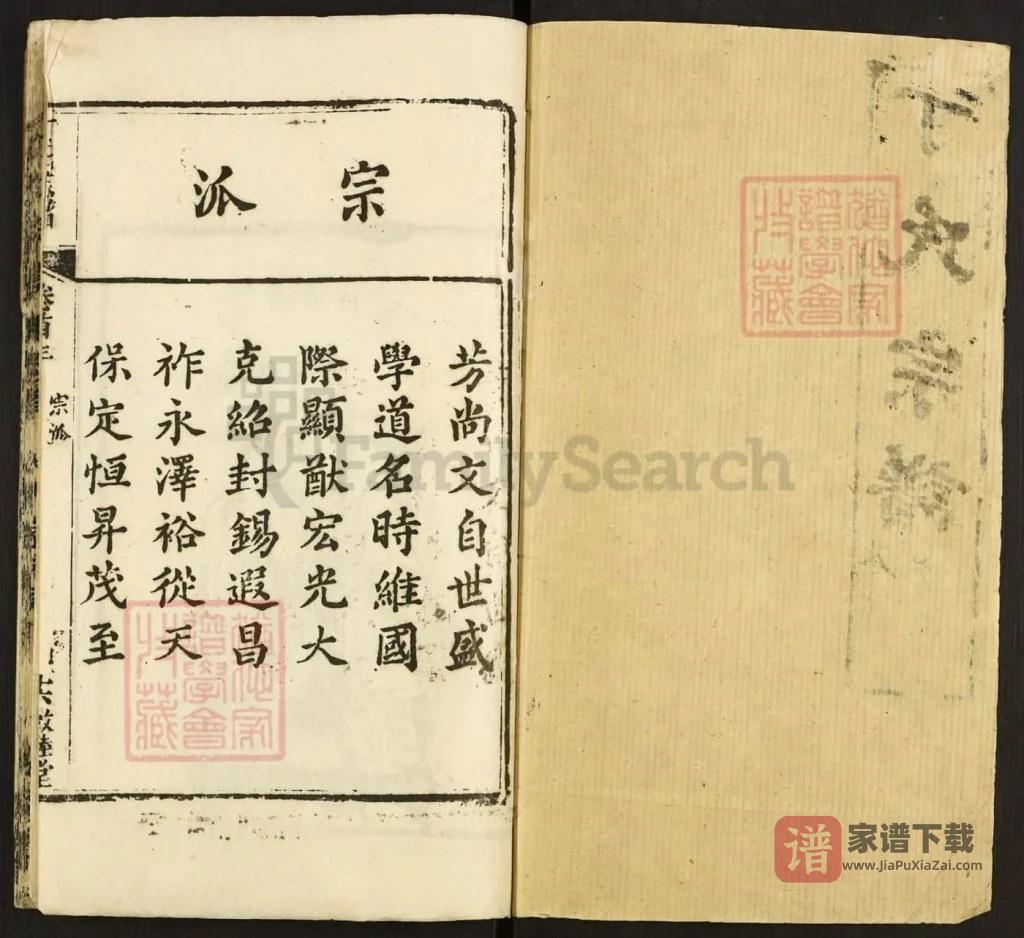 宗派
芳尚文自世盛
學道名時維國
際顯猷宏光大
克紹封錫遐昌
祚永澤裕從天
保定恒昇茂至
卷首三
宗派
敦睦堂
譜學會
藏
譜學會
藏
FamilySearch
谱
家谱下载
www.JiaPuXiaZai.com